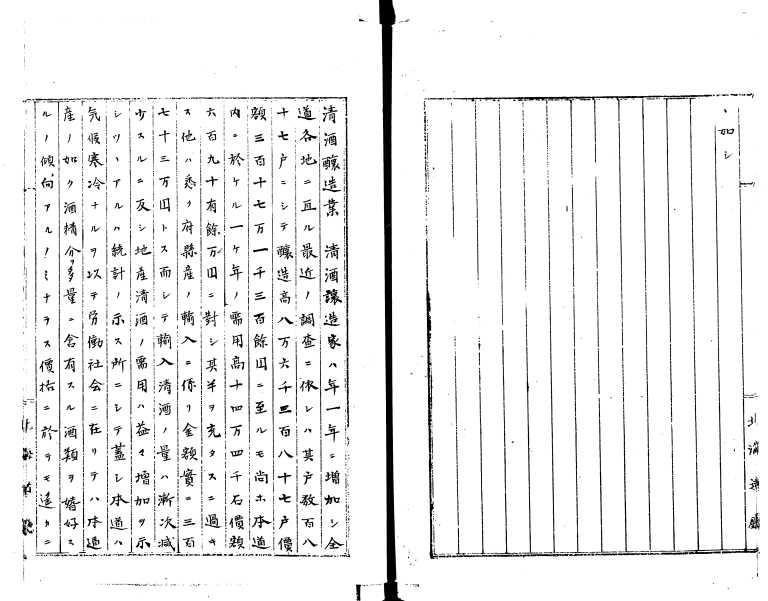 ヽ如シ
北海道廳
清酒釀造業 清酒釀造家ハ年一年ニ増加シ全
道各地ニ亘ル最近ノ調査ニ依レハ其戸数百八
十七戸ニシテ釀造高八万六千三百八十七戸價
額三百十七万一千三百餘円ニ至ルモ尚ホ本道
内ニ於ケル一ケ年ノ需用高十四万四千石價額
六百九十有餘万円ニ對シ其半ヲ充タスニ過キ
ス他ハ悉ク府縣産ノ輸入ニ係リ金額實ニ三百
七十三万円トス而シテ輸入清酒ノ量ハ漸次減
少スルニ反シ地産清酒ノ需用ハ益々増加ヲ示
シツヽアルハ統計ノ示ス所ニシテ蓋シ本道ハ
気候寒冷ナルヲ以テ労働社会ニ在リテハ本道
産ノ如ク酒精分ヲ多量ニ含有スル酒類ヲ嗜好ス
ルノ傾向アルノミナラス價格ニ於テモ遥カニ